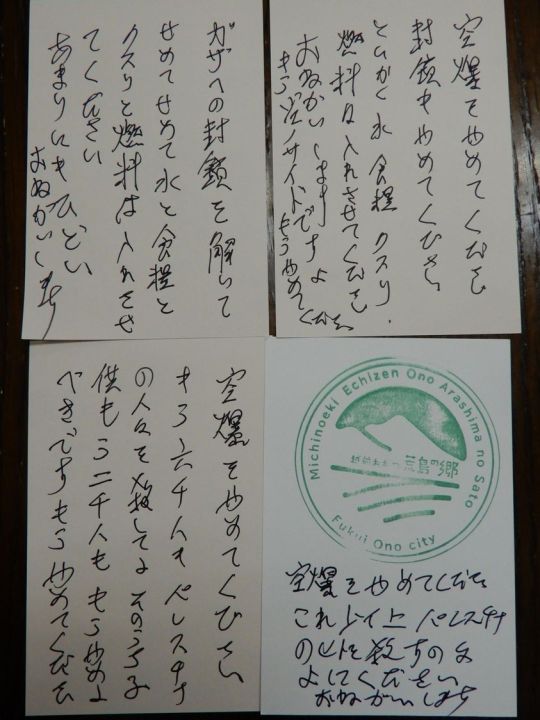 空爆をやめてください
封鎖もやめてください
とにかく水 食糧 クスリ、
燃料は入れさせてください
おねがいします
もうジェノサイドですよ
もうやめてください
ガザへの封鎖を解いて
せめてせめて水と食糧と
クスリと燃料は入れさせ
てください
あまりにもひどい
おねがいします
空爆をやめてください
もう六千人もパレスチナ
の人々を殺してよ そのうち子
供もう二千人も もう やめる
べきです もう やめてください
Michinoeki Echizen Ono Arashima no Sato
越前おおの 荒島の郷
Fukui Ono city
空爆をやめてください
これ以上 パレスチナ
の人を殺すのは
よしてください
おねがいします